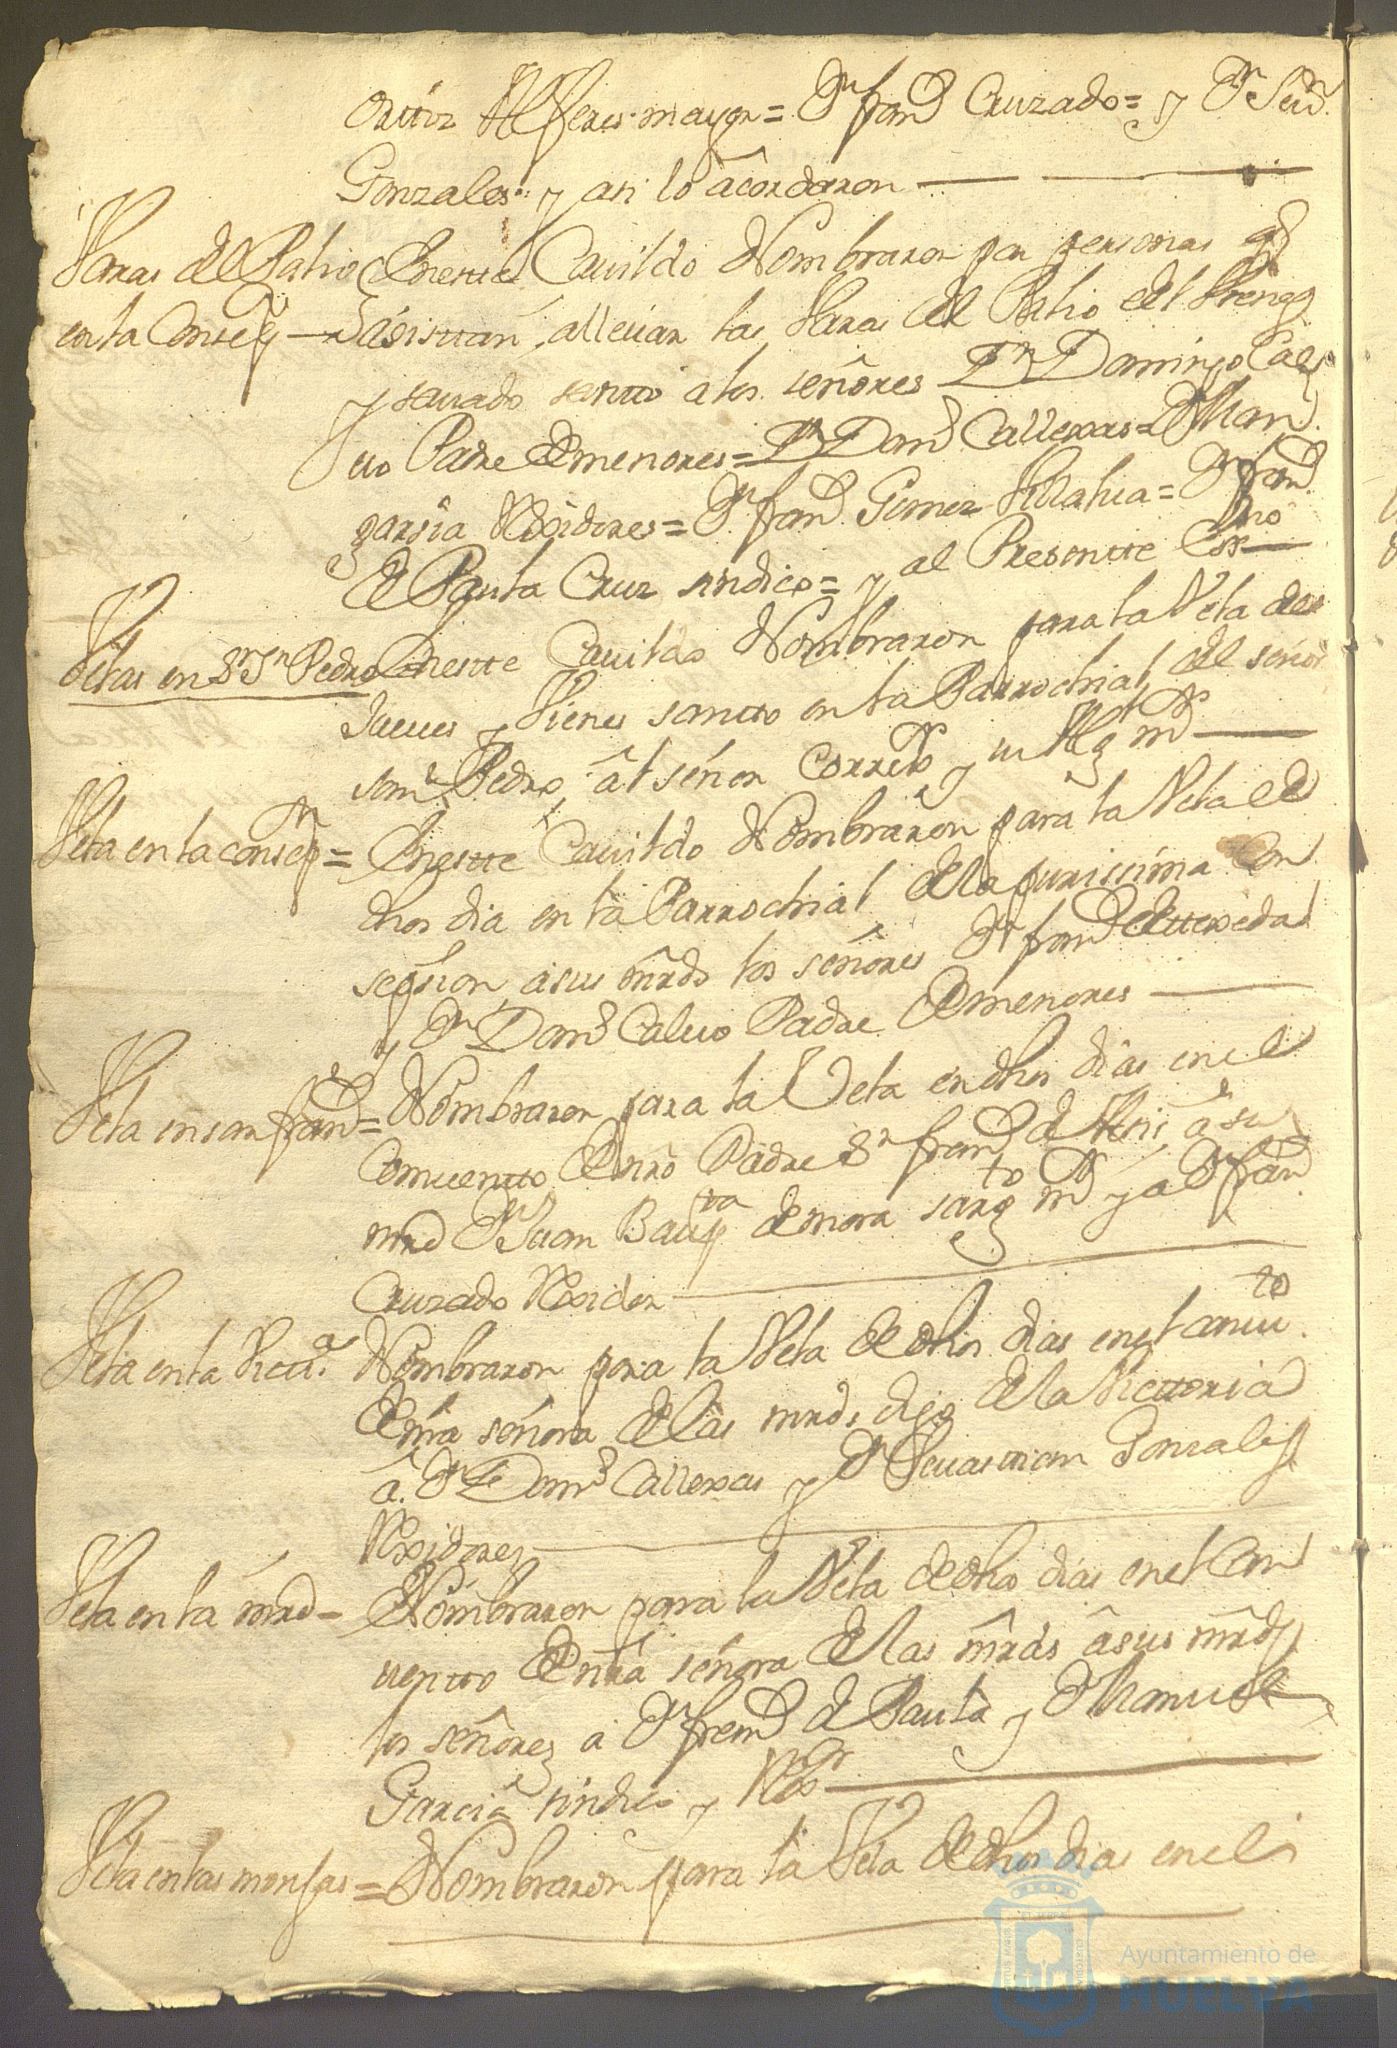 Orttiz Alferes mayor = Dn franco Cruzado = y Dn Seun.
Gonzales: y asi lo acordaron
Varas del Palio Enestte Cauildo Nombraron por personas qe
en la Consepn asistan, alleuar las Varas del Palio el
y sauado santto a los señores Dn Domingo Cal
uo Padre de menores = Dn Domo Callexas = Dn Man.
garsia Rexidores = Dn franco Gomez = Dn franco
de Paula Cruz sindico = y al Presentte Essno
Velas en Sr Sn Pedro Enestte Cauildo Nombraron para la Vela del
Jueues y Viernes santto en la Parrochial del señor
san Pedro, al señor Correxor y su Algl mr
Vela en la consepn = Enestte Cauildo Nombraron para la Vela de
dhos dia en la Parrochial de la purissima Con
sepsion, a sus mrds los señores Dn franco de ttexeda
y Dn Domo Caluo Padre de menores
Vela en san franco = Nombraron para la Vela en dhos dias en el
Conuentto de nro Padre Sn franco de Asis, a su
mrd Dn Juan Bauptta de mora sargto mr y a Dn franco
Cruzado Rexidor
Vela en la Victta. Nombraron para la Vela de dhos dias en el conuto.
de nra señora de las mrds, digo de la Victtoria
a. Dn Domo Callexas y Dn Seuasttian Gonzales
Rexidores
Vela en la mrd = Nombraron para la Vela de dhos dias en el Con
uentto de nra señora de las mrds a sus mrds
los señores a Dn franco de Paula y Dn Manuel
Garcia sindico y Rexor
Vela en las monjas = Nombraron para la Vela de dhos dias en el
Ayuntamiento de
HUELVA